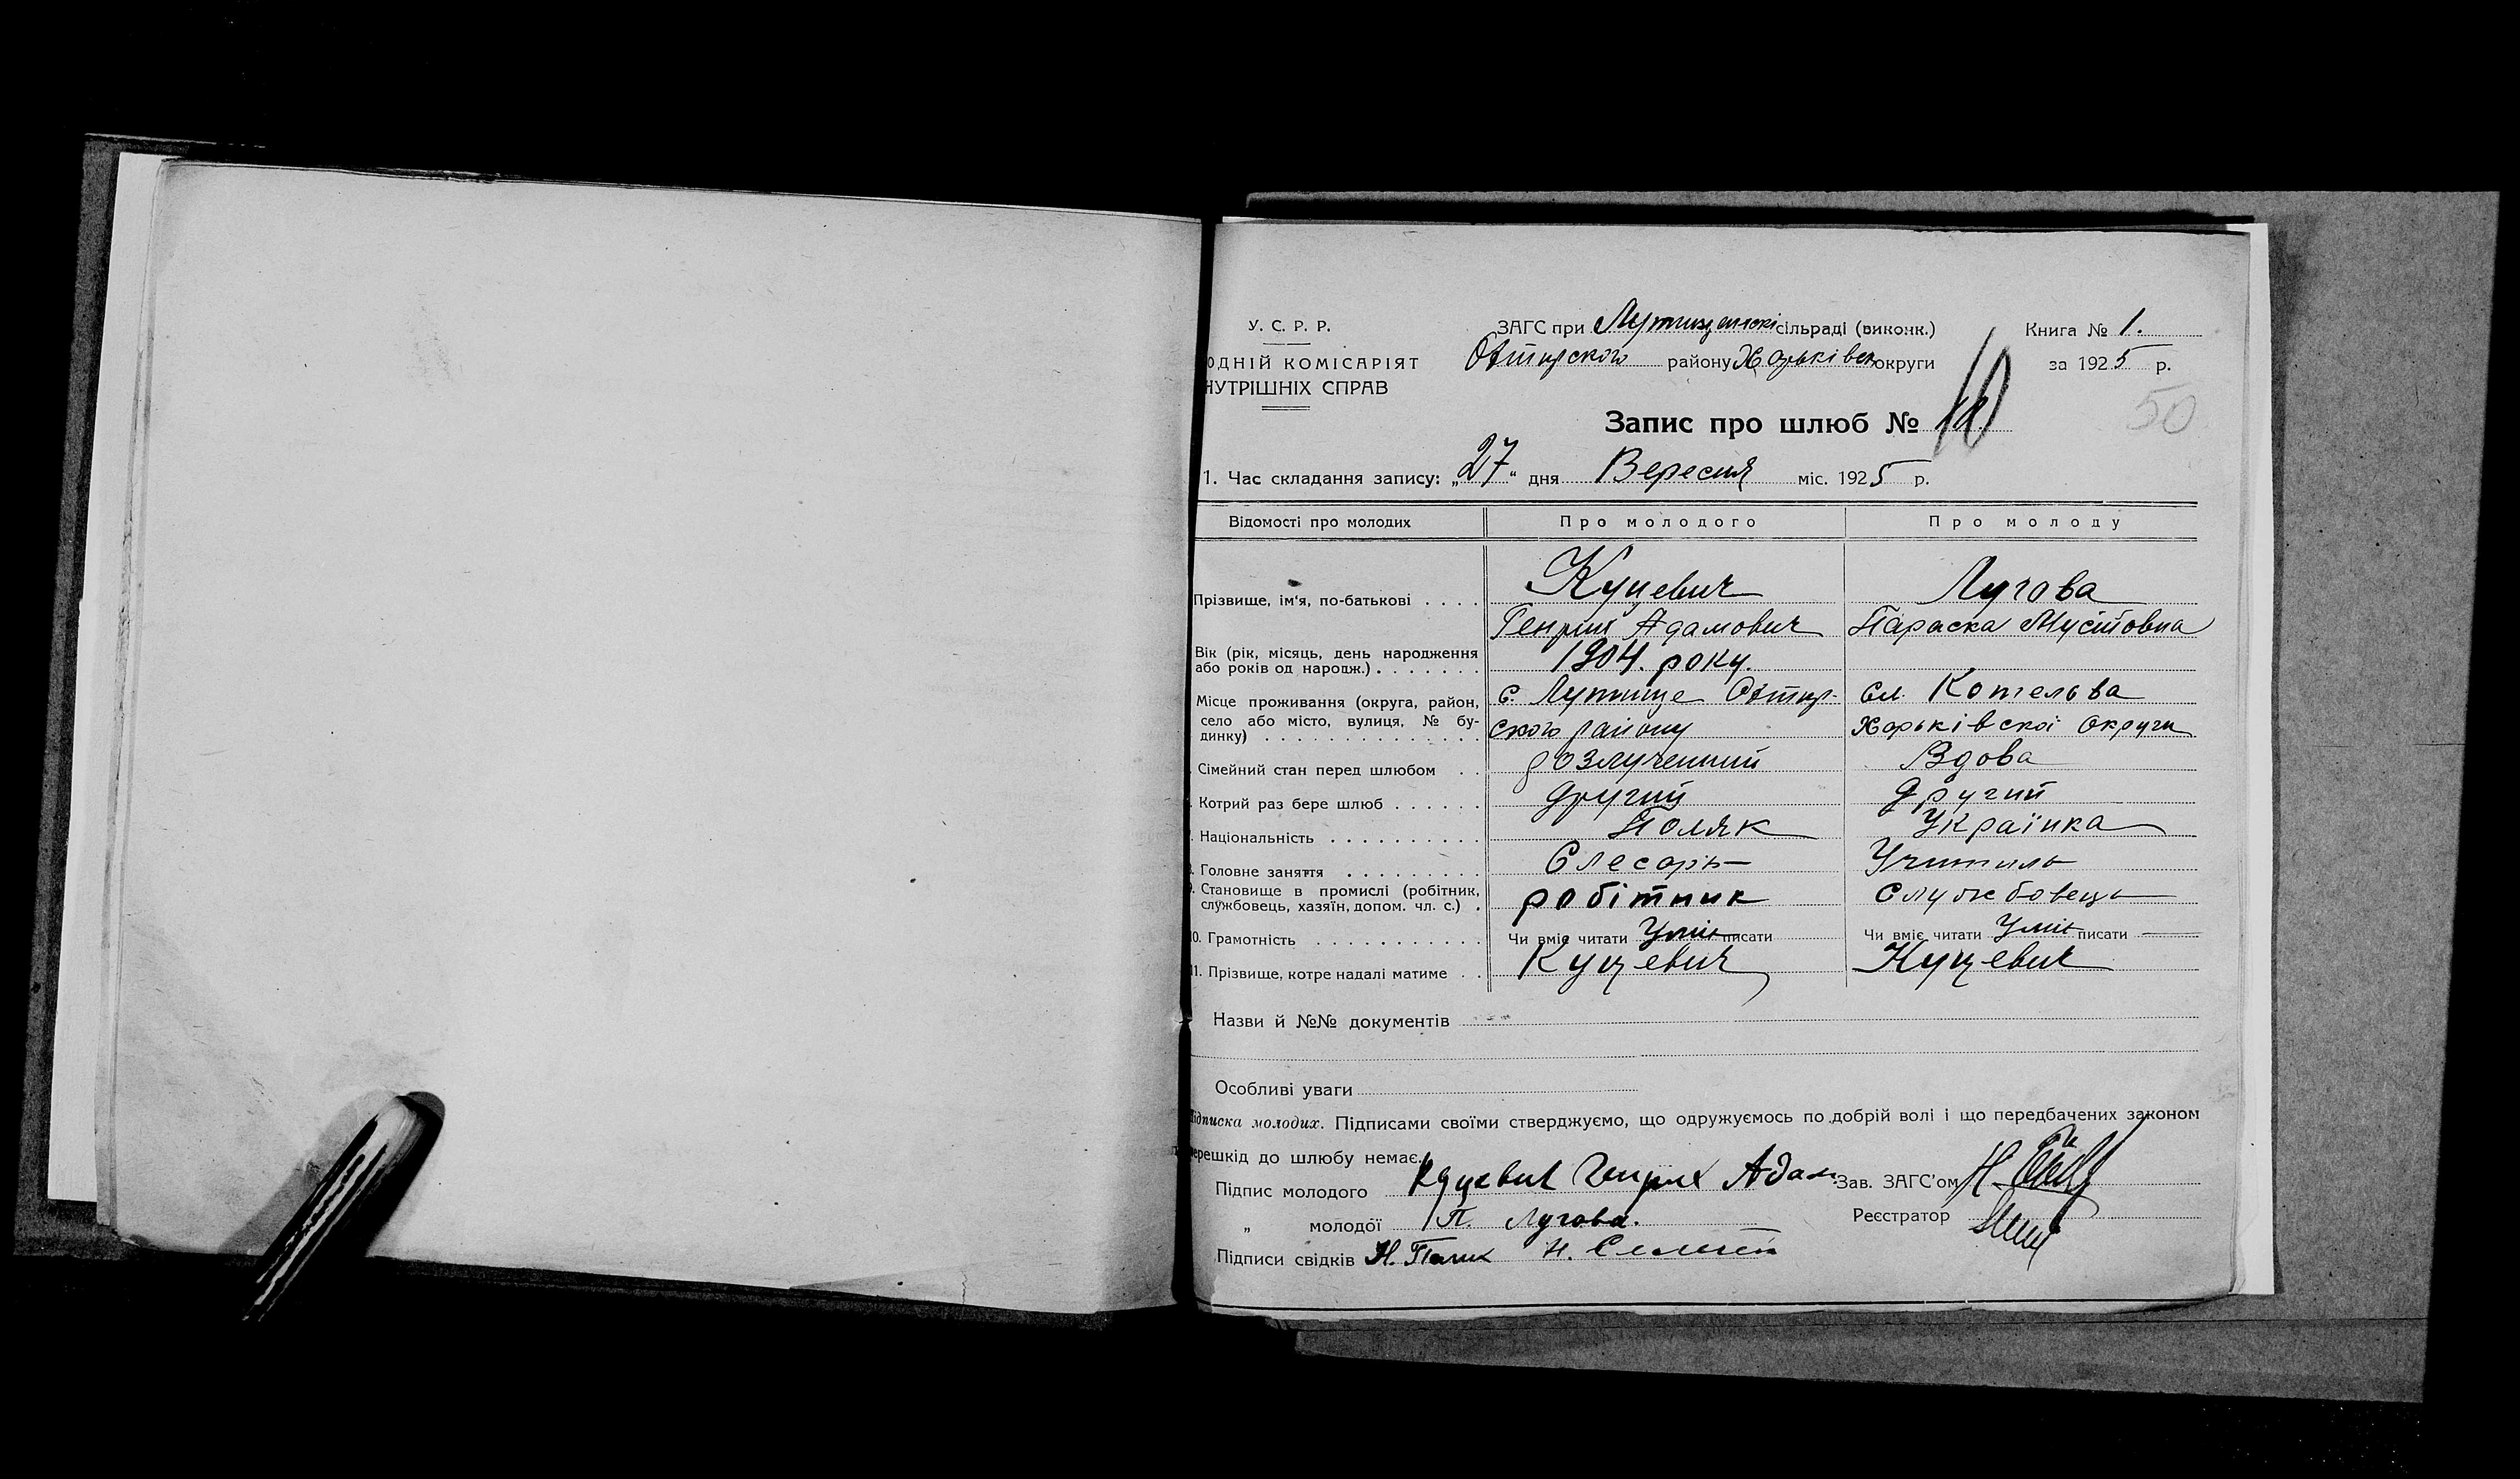 У. С. Р. Р.
ОДНІЙ КОМІСАРІЯТ
НУТРІШНІХ СПРАВ
ЗАГС при Лутищенскі сільраді (виконк.)
Охтирского району Харьківск округи
Книга № 1.
за 1925 р.
50
Запис про шлюб № 10
1. Час складання запису: „27“ дня Вересня міс. 1925 р.
Відомості про молодих Про молодого Про молоду
Прізвище, ім'я, по-батькові . . . . Куцевич Лугова
Генрих Адамович Параска Мусіовна
Вік (рік, місяць, день народження
або років од народж.) . . . . . . . 1904. року.
Місце проживання (округа, район, с. Лутище Охтир- сл. Котельва
село або місто, вулиця, № бу- ского району Харьківскої Округи
динку) . . . . . . . . . . . . . . .
Сімейний стан перед шлюбом . . розлученний Вдова
Котрий раз бере шлюб . . . . . . другий другий
Національність . . . . . . . . . . Поляк Українка
Головне заняття . . . . . . . . . Слесарь Учитиль
Становище в промислі (робітник, робітник Службовець
службовець, хазяїн, допом. чл. с.) .
10. Грамотність . . . . . . . . . . . Чи вміє читати Уміє писати Чи вміє читати Уміє писати
11. Прізвище, котре надалі матиме . . Куцевич Куцевич
Назви й №№ документів
Особливі уваги
Підписка молодих. Підписами своїми стверджуємо, що одружуємось по добрій волі і що передбачених законом
перешкід до шлюбу немає.
Підпис молодого Куцевич Генрих Адам Зав. ЗАГС'ом
„ молодої П. Лугова. Реєстратор
Підписи свідків Н.